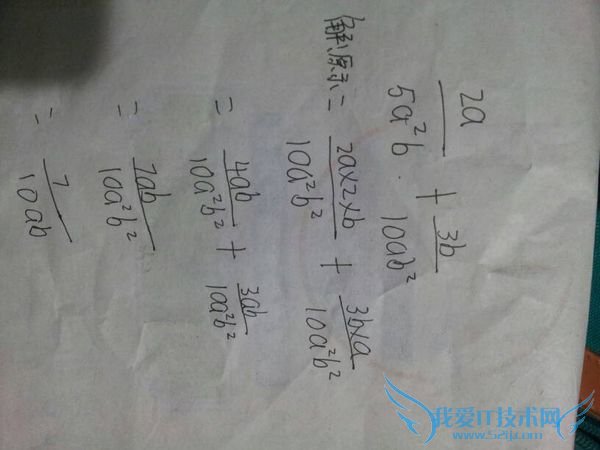 2a/5a²b + 3b/10ab²
解:原式= 2a×2×b/10a²b² + 3b×a/10a²b²
= 4ab/10a²b² + 3ab/10a²b²
= 7ab/10a²b²
= 7/10ab
我爱IT技术网
www.52ij.com